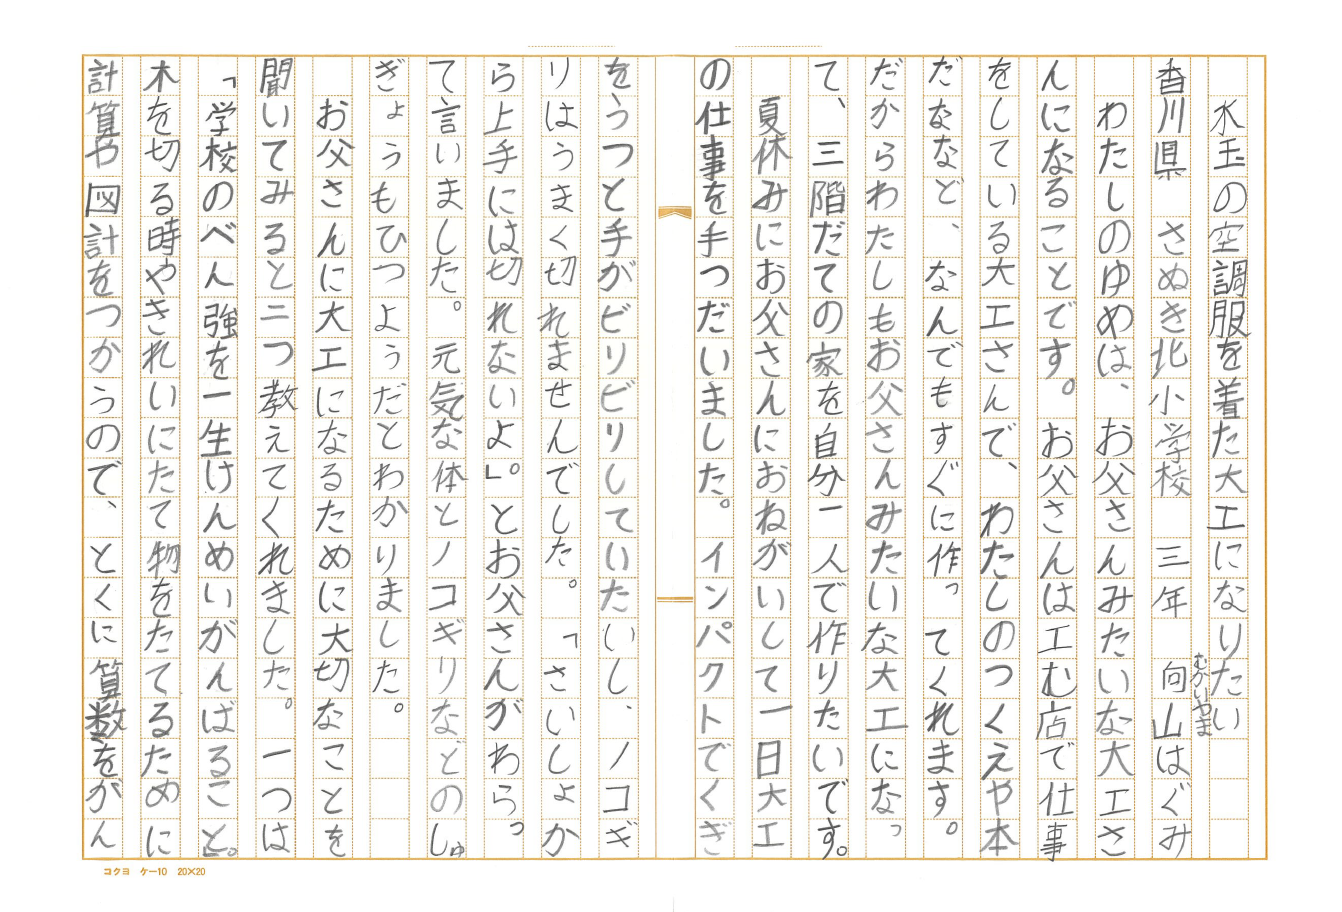 水玉の空調服を着た大工になりたい
香川県　さぬき北小学校　三年　向山はぐみ
むかいやま
わたしのゆめは、お父さんみたいな大工さ
んになることです。お父さんは工む店で仕事
をしている大工さんで、わたしのつくえや本
だななど、なんでもすぐに作ってくれます。
だからわたしもお父さんみたいな大工になっ
て、三階だての家を自分一人で作りたいです。
夏休みにお父さんにおねがいして一日大工
の仕事を手つだいました。インパクトでくぎ
をうつと手がビリビリしていたいし、ノコギ
リはうまく切れませんでした。「さいしょか
ら上手には切れないよ」。とお父さんがわらっ
て言いました。元気な体とノコギリなどのしゅ
ぎょうもひつようだとわかりました。
お父さんに大工になるために大切なことを
聞いてみると二つ教えてくれました。一つは
「学校のべん強を一生けんめいがんばること。
木を切る時やきれいにたて物をたてるために
計算や図計をつかうので、とくに算数をがん
コクヨ　ケー10　20×20